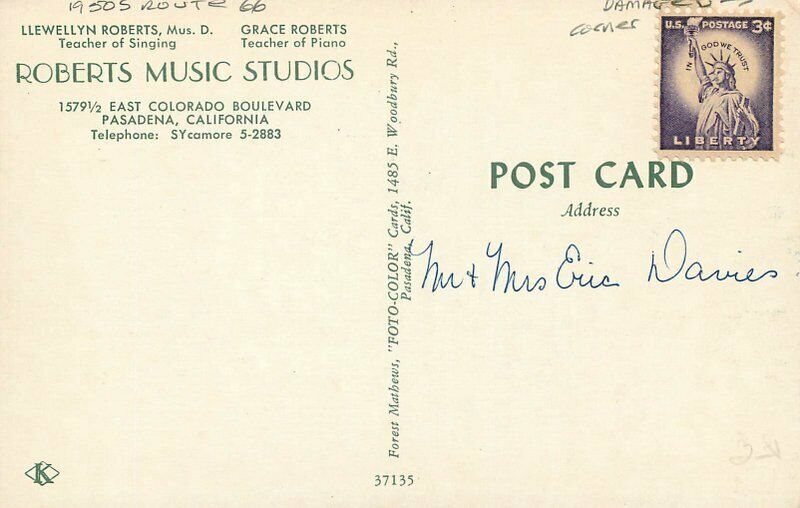 1950S ROUTE 66
DAMAGED
corner
LLEWELLYN ROBERTS, Mus. D.
Teacher of Singing
GRACE ROBERTS
Teacher of Piano
ROBERTS MUSIC STUDIOS
1579½ EAST COLORADO BOULEVARD
PASADENA, CALIFORNIA
Telephone: SYcamore 5-2883
U.S. POSTAGE 3¢
IN GOD WE TRUST
LIBERTY
POST CARD
Address
Mr & Mrs Eric Davies
Forest Mathews, "FOTO-COLOR" Cards, 1485 E. Woodbury Rd.,
Pasadena, Calif.
K
37135